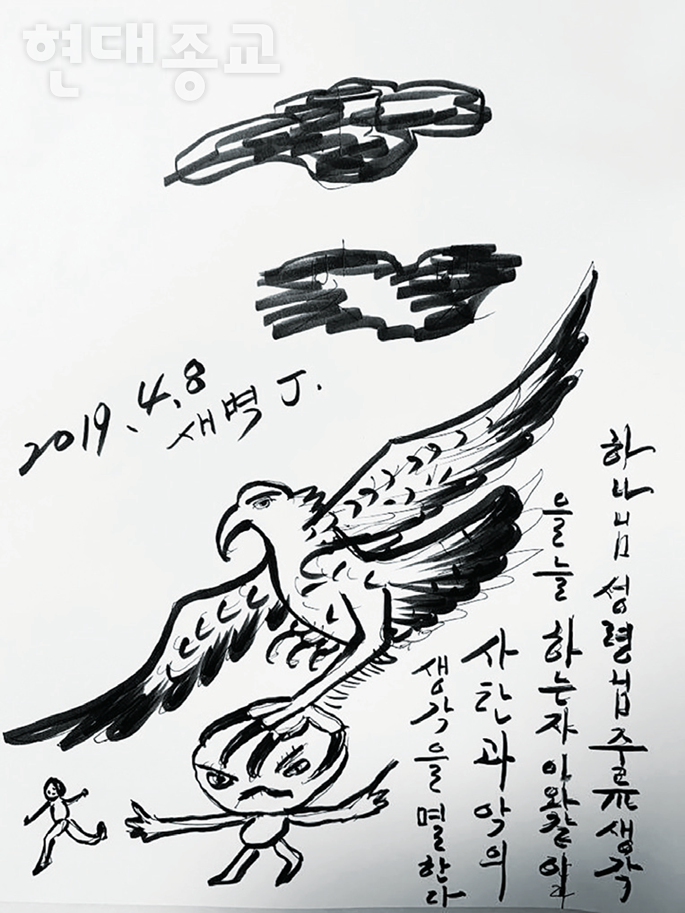 현대종교
2019.4.8
새벽 J.
하나님 성령님 주 생각
을 늘 하는자 이와같이
사탄과 악의
생각을 멸한다